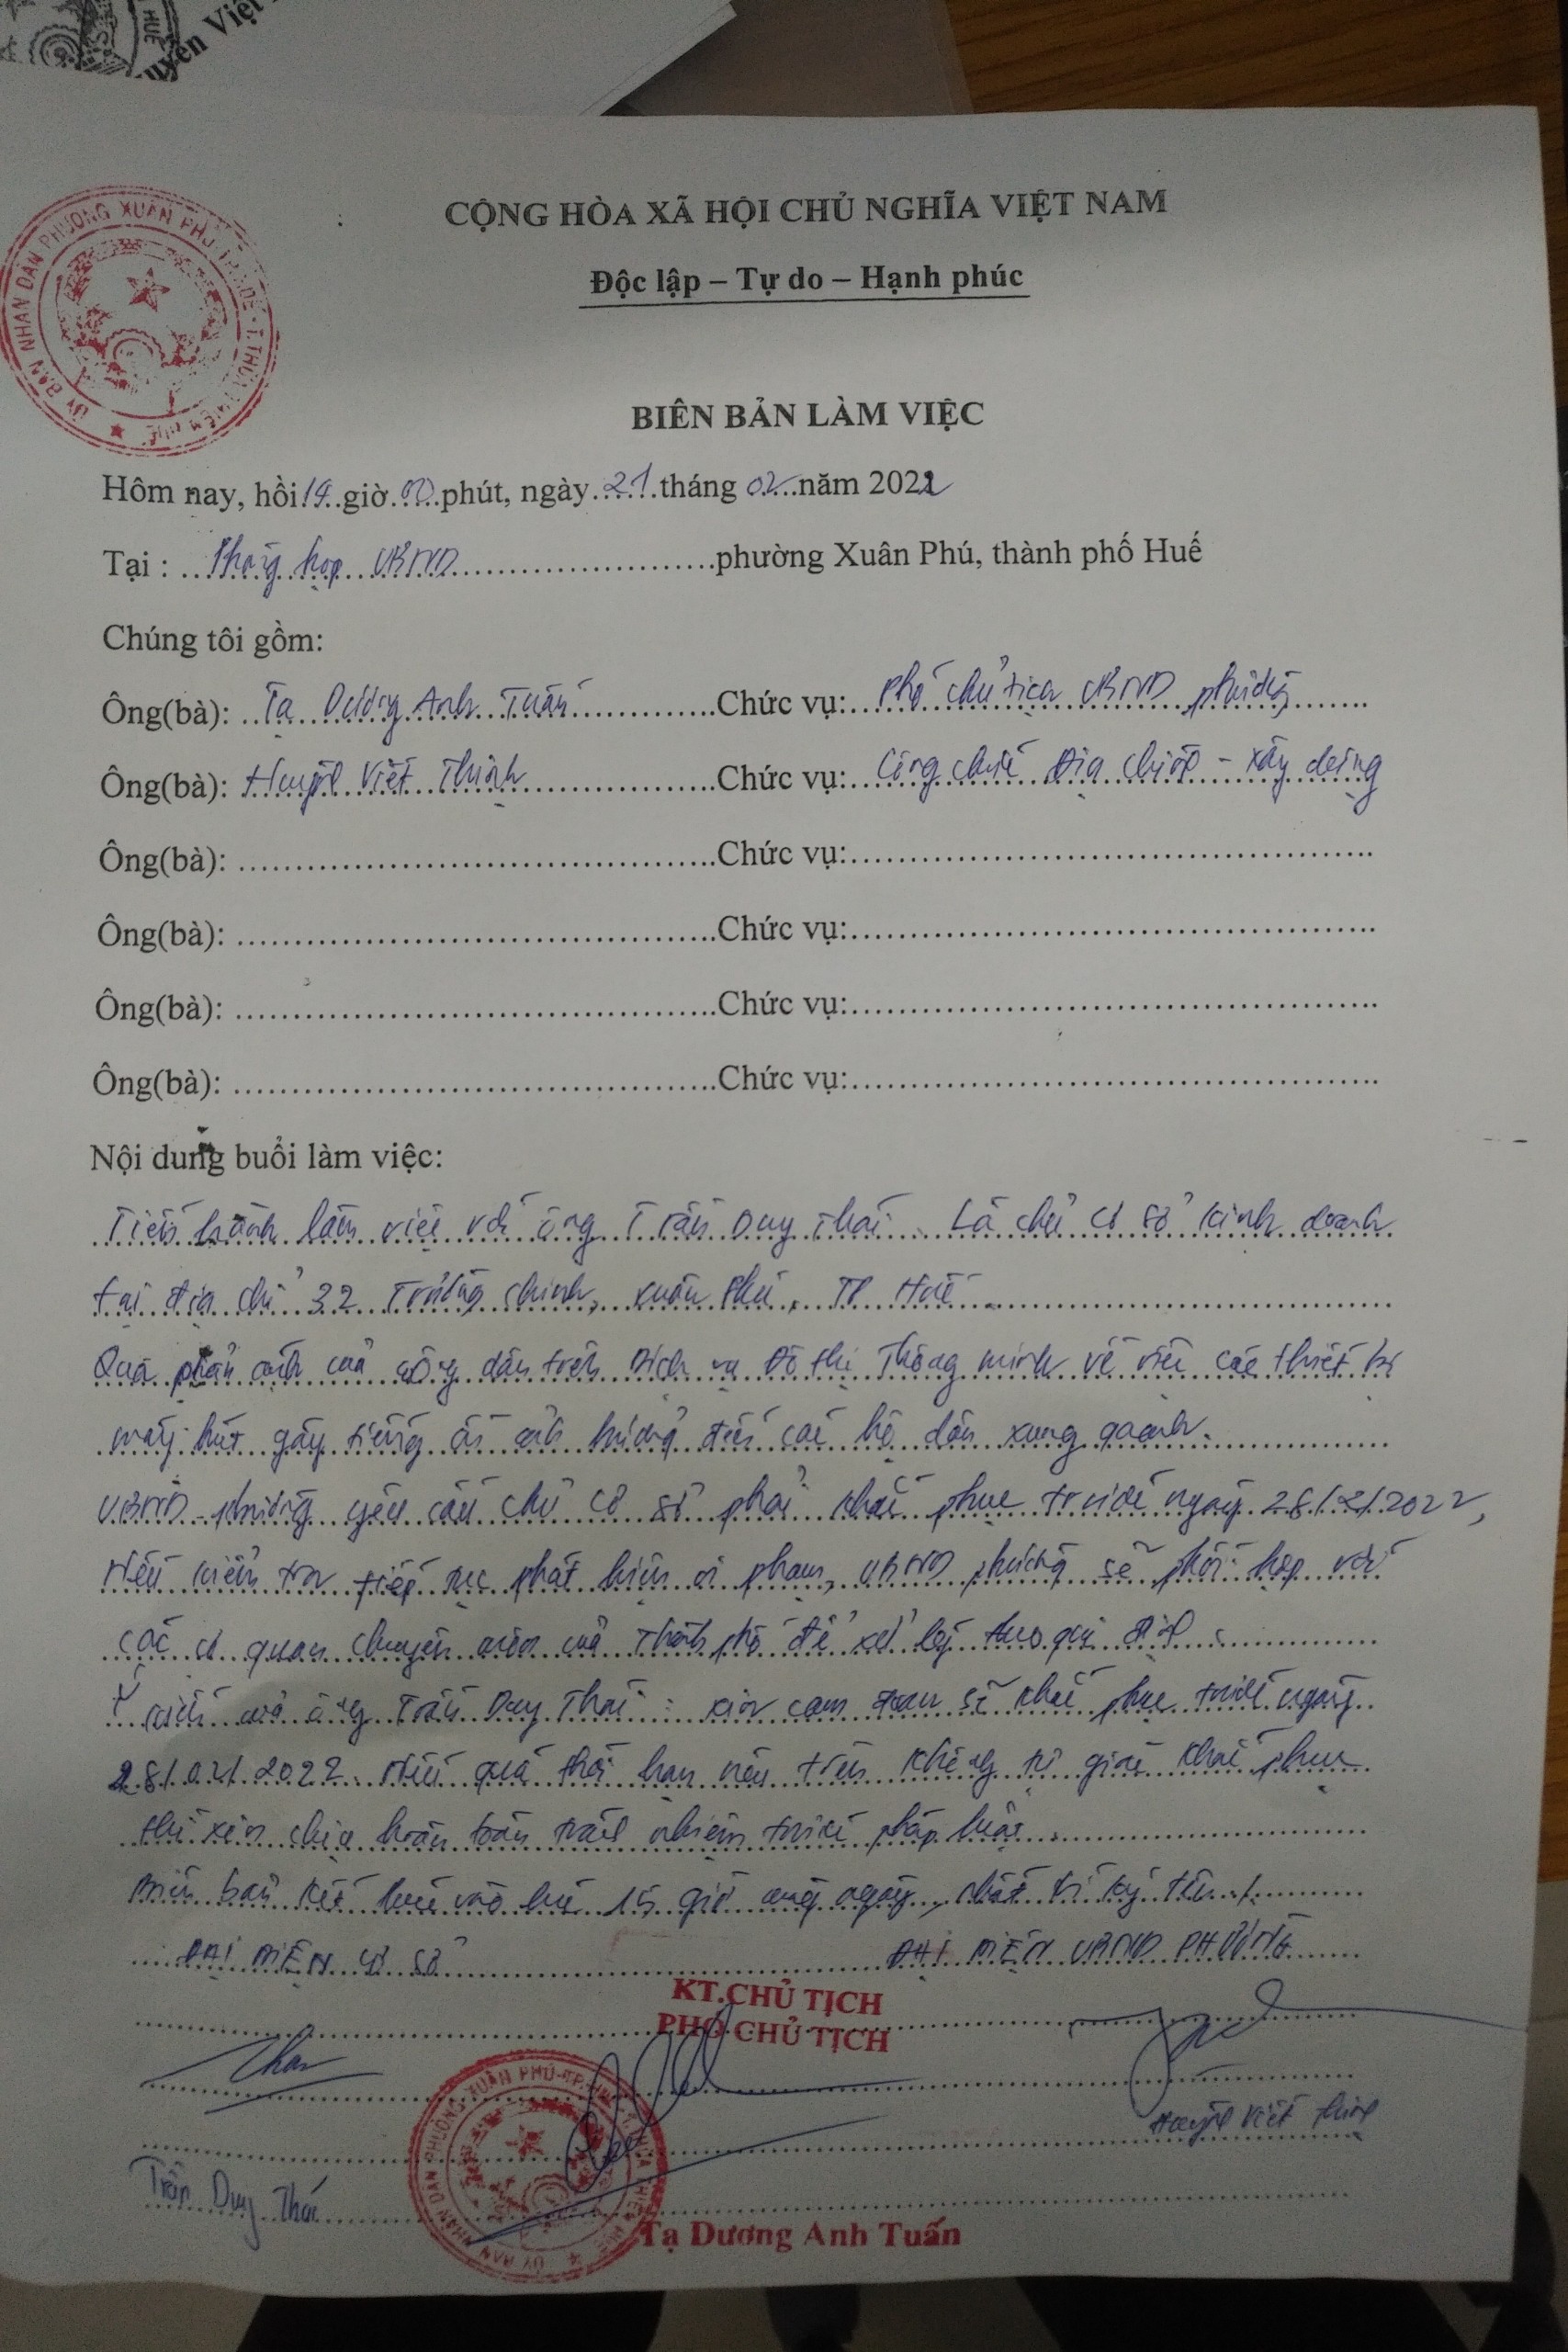 HUẾ
uyễn Việt
CỘNG HÒA XÃ HỘI CHỦ NGHĨA VIỆT NAM
Độc lập – Tự do – Hạnh phúc
ỦY BAN NHÂN DÂN PHƯỜNG XUÂN PHÚ
BIÊN BẢN LÀM VIỆC
Hôm nay, hồi 14 giờ 00 phút, ngày 21 tháng 02 năm 2022
Tại : Phòng họp UBND phường Xuân Phú, thành phố Huế
Chúng tôi gồm:
Ông(bà): Tạ Dương Anh Tuấn Chức vụ: Phó chủ tịch UBND phường
Ông(bà): Huỳnh Viết Thịnh Chức vụ: Công chức Địa chính - xây dựng
Ông(bà): Chức vụ:
Ông(bà): Chức vụ:
Ông(bà): Chức vụ:
Ông(bà): Chức vụ:
Nội dung buổi làm việc:
Tiến hành làm việc với ông Trần Duy Thái. Là chủ cơ sở kinh doanh
tại địa chỉ 32 Trường Chinh, Xuân Phú, TP Huế
Qua phản ánh của công dân trên Dịch vụ Đô thị Thông minh về việc các thiết bị
máy hút gây tiếng ồn ảnh hưởng đến các hộ dân xung quanh.
UBND phường yêu cầu chủ cơ sở phải khắc phục trước ngày 28/2/2022,
Nếu kiểm tra tiếp tục phát hiện vi phạm, UBND phường sẽ phối hợp với
các cơ quan chuyên môn của Thành phố để xử lý theo quy định.
Ý kiến của ông Trần Duy Thái: xin cam đoan sẽ khắc phục trước ngày
28/02/2022. Nếu quá thời hạn nêu trên không tự giác khắc phục
thì xin chịu hoàn toàn trách nhiệm trước pháp luật.
Biên bản kết thúc vào lúc 15 giờ cùng ngày, nhất trí ký tên./.
ĐẠI DIỆN CƠ SỞ ĐẠI DIỆN UBND PHƯỜNG
KT.CHỦ TỊCH
PHÓ CHỦ TỊCH
Thái
Huỳnh Viết Thịnh
Trần Duy Thái
Tạ Dương Anh Tuấn